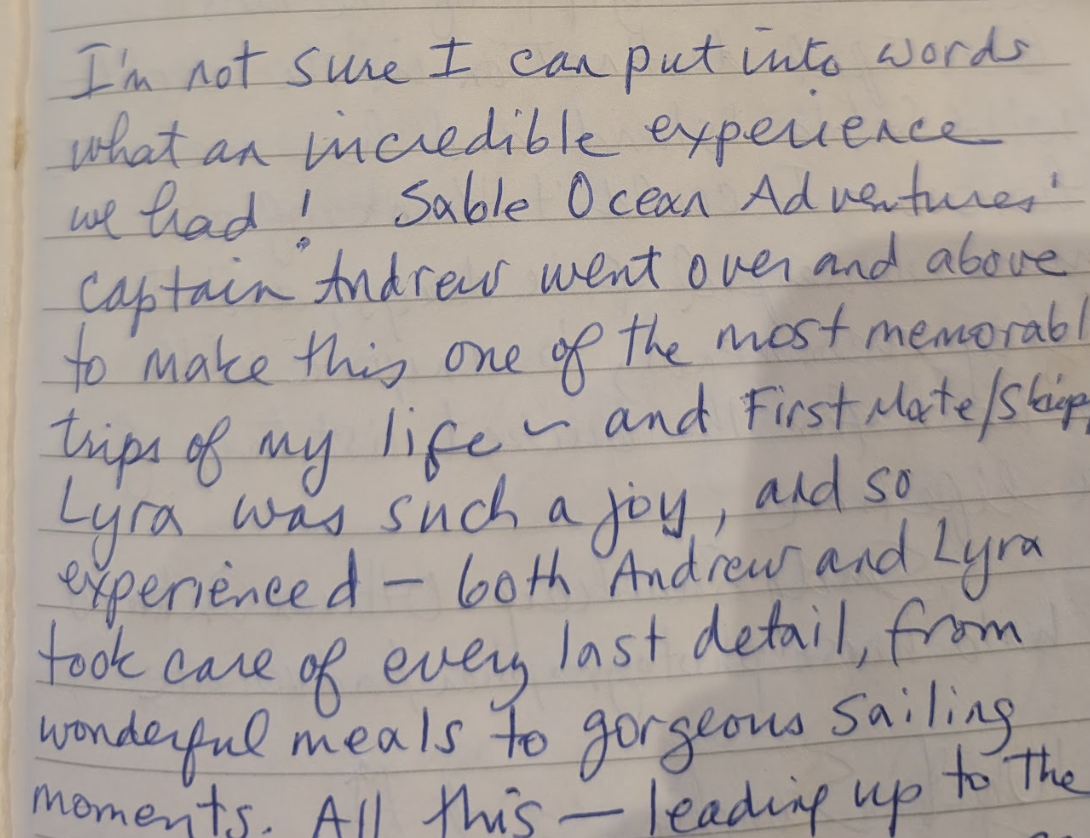 I'm not sure I can put into words
what an incredible experience
we had! Sable Ocean Adventures'
captain Andrew went over and above
to make this one of the most memorabl
trips of my life - and First Mate/Skipp
Lyra was such a joy, and so
experienced - both Andrew and Lyra
took care of every last detail, from
wonderful meals to gorgeous sailing
moments. All this - leading up to the